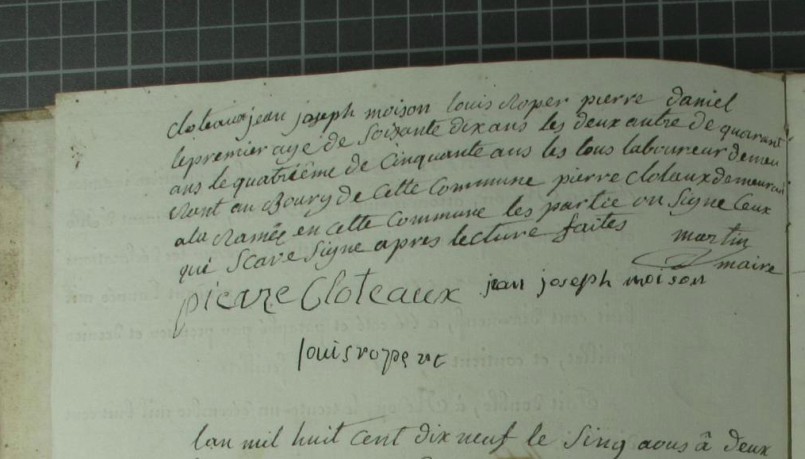 cloteaux jean joseph moison louis roper pierre daniel
le premier age de soisante dix ans les deux autre de quarant
ans le quatrième de cinquante ans les tous laboureur demeu
rant au Bourg de cette Commune pierre clotaux demeurant
a la Ramée en cette Commune les partie on signe ceux
qui scave signe apres lecture faites martin
maire
pierre Cloteaux jean joseph moison
louis ropert
lan mil huit cent dix neuf le sinq aous à deux